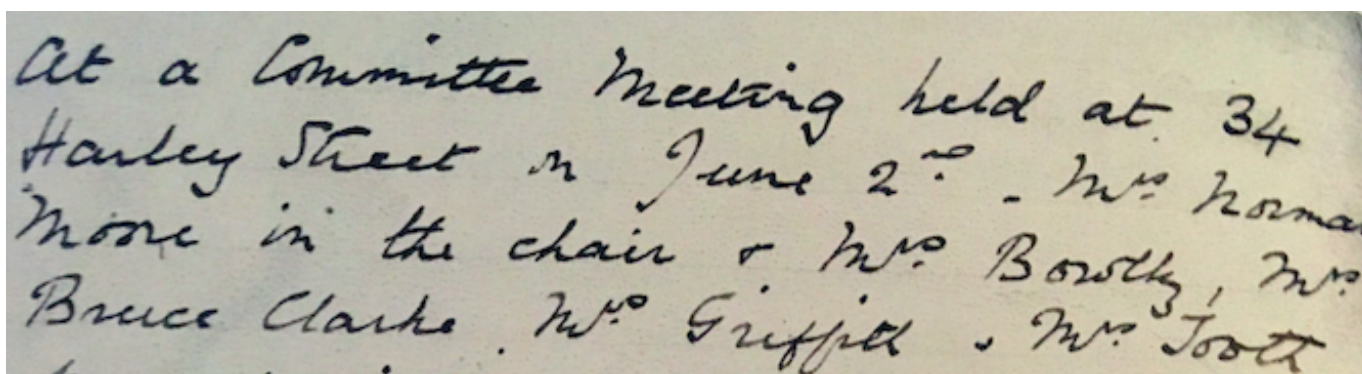 At a Committee Meeting held at 34
Harley Street on June 2nd - Mrs Norma
Moore in the chair & Mrs Bowlby, Mrs
Bruce Clarke, Mrs Griffith & Mrs Tooth